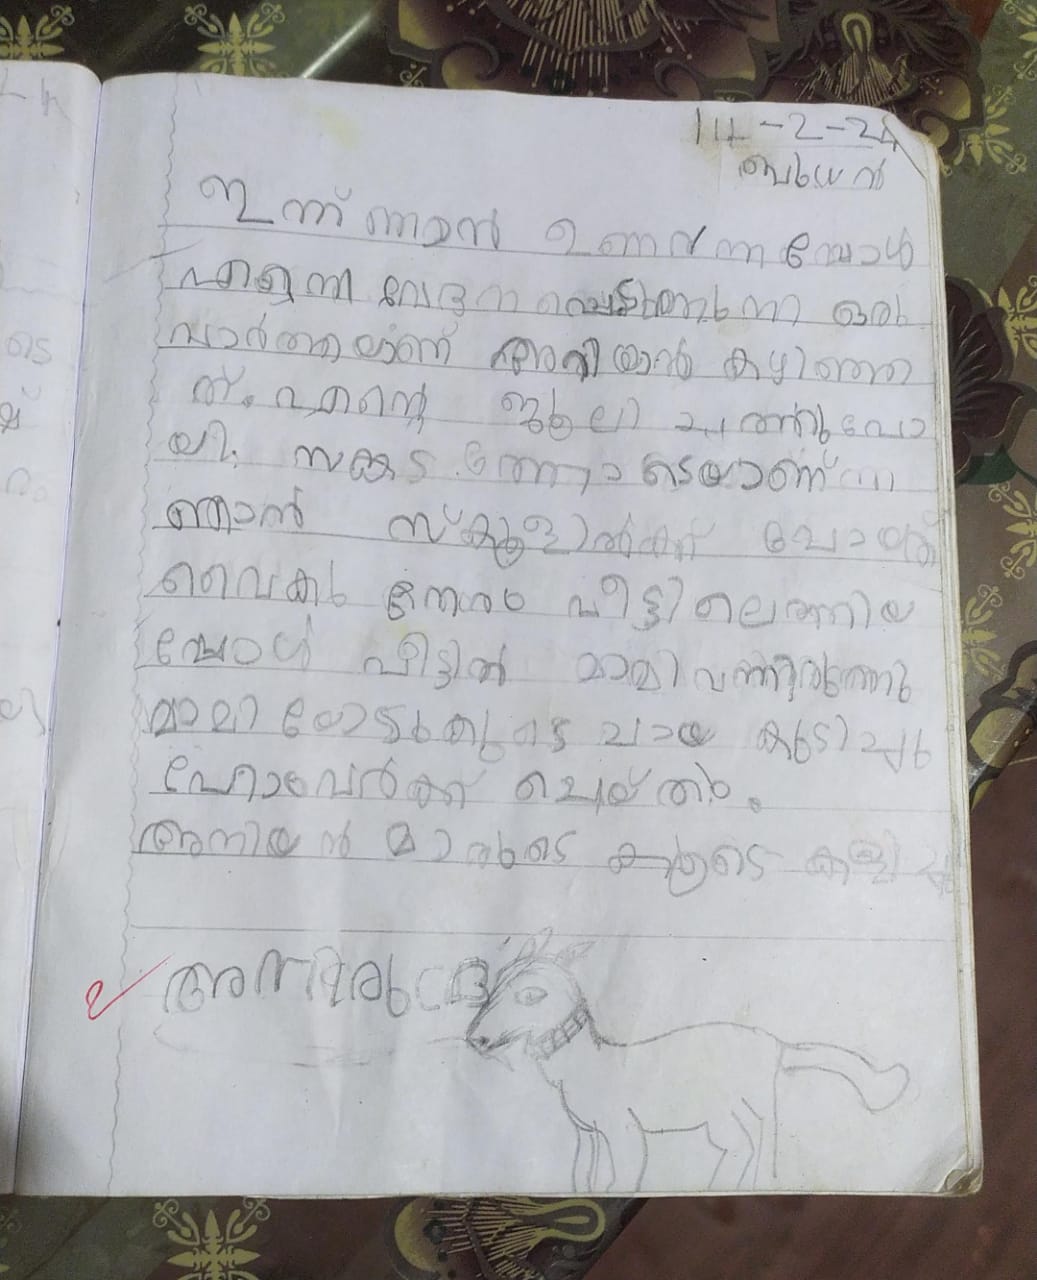 14-2-24
ബുധൻ
ഇന്ന് ഞാൻ ഉണർന്നപ്പോൾ
എന്നെ വേദനപ്പെടുത്തുന്ന ഒരു
വാർത്തയാണ് അറിയാൻ കഴിഞ്ഞ
ത്. എന്റെ ജൂലി ചത്തുപോ
യി. സങ്കടത്തോടെയാണ്
ഞാൻ സ്കൂളിൽക്ക് പോയത്
വൈകു നേരം വീട്ടിലെത്തിയ
പ്പോൾ വീട്ടിൽ മാമി വന്നിരുന്നു
മാമിയോടുകൂടെ ചായ കുടിച്ചു
ഹോംവർക്ക് ചെയ്തു.
അനിയൻ മാരുടെ കൂടെ കളിച്ചു
അനിരുദ്ദ്